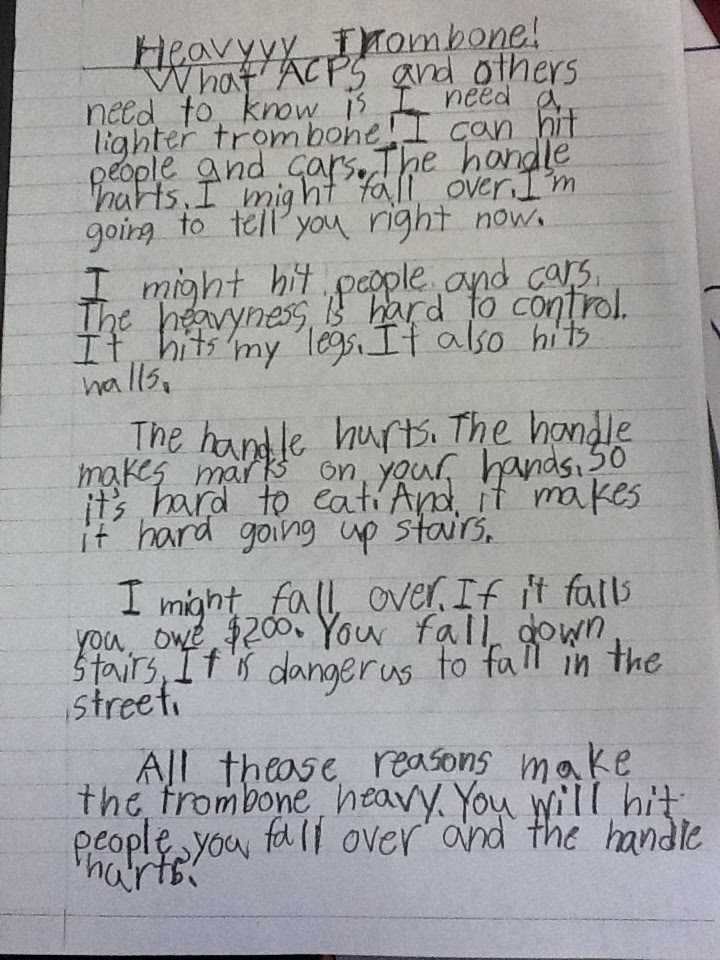 Heavyyy Trombone!
What ACPS and others
need to know is I need a
lighter trombone! I can hit
people and cars. The handle
hurts. I might fall over. I'm
going to tell you right now.
I might hit people and cars.
The heavyness is hard to control.
It hits my legs. It also hits
walls.
The handle hurts. The handle
makes marks on your hands. So
it's hard to eat. And it makes
it hard going up stairs.
I might fall over. If it falls
you owe $200. You fall down
stairs. It is dangerus to fall in the
street.
All thease reasons make
the trombone heavy. You will hit
people, you fall over and the handle
hurts.